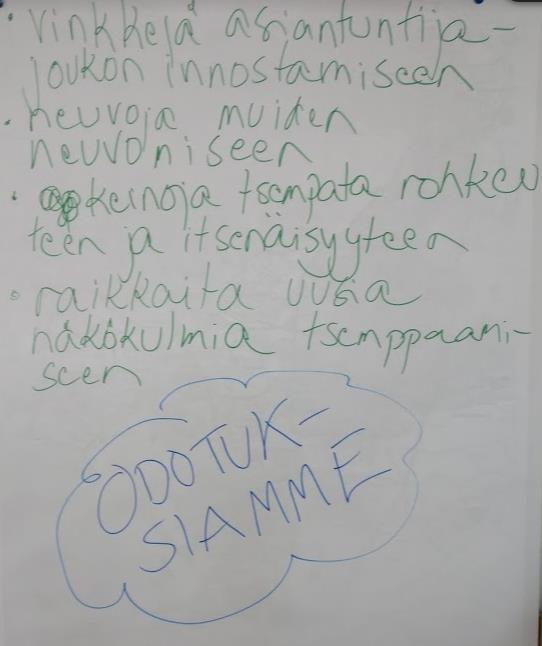 • vinkkejä asiantuntija-
joukon innostamiseen
• neuvoja muiden
neuvomiseen
• keinoja tsempata rohkeu
teen ja itsenäisyyteen
• raikkaita uusia
näkökulmia tsemppaami-
seen
ODOTUK-
SIAMME